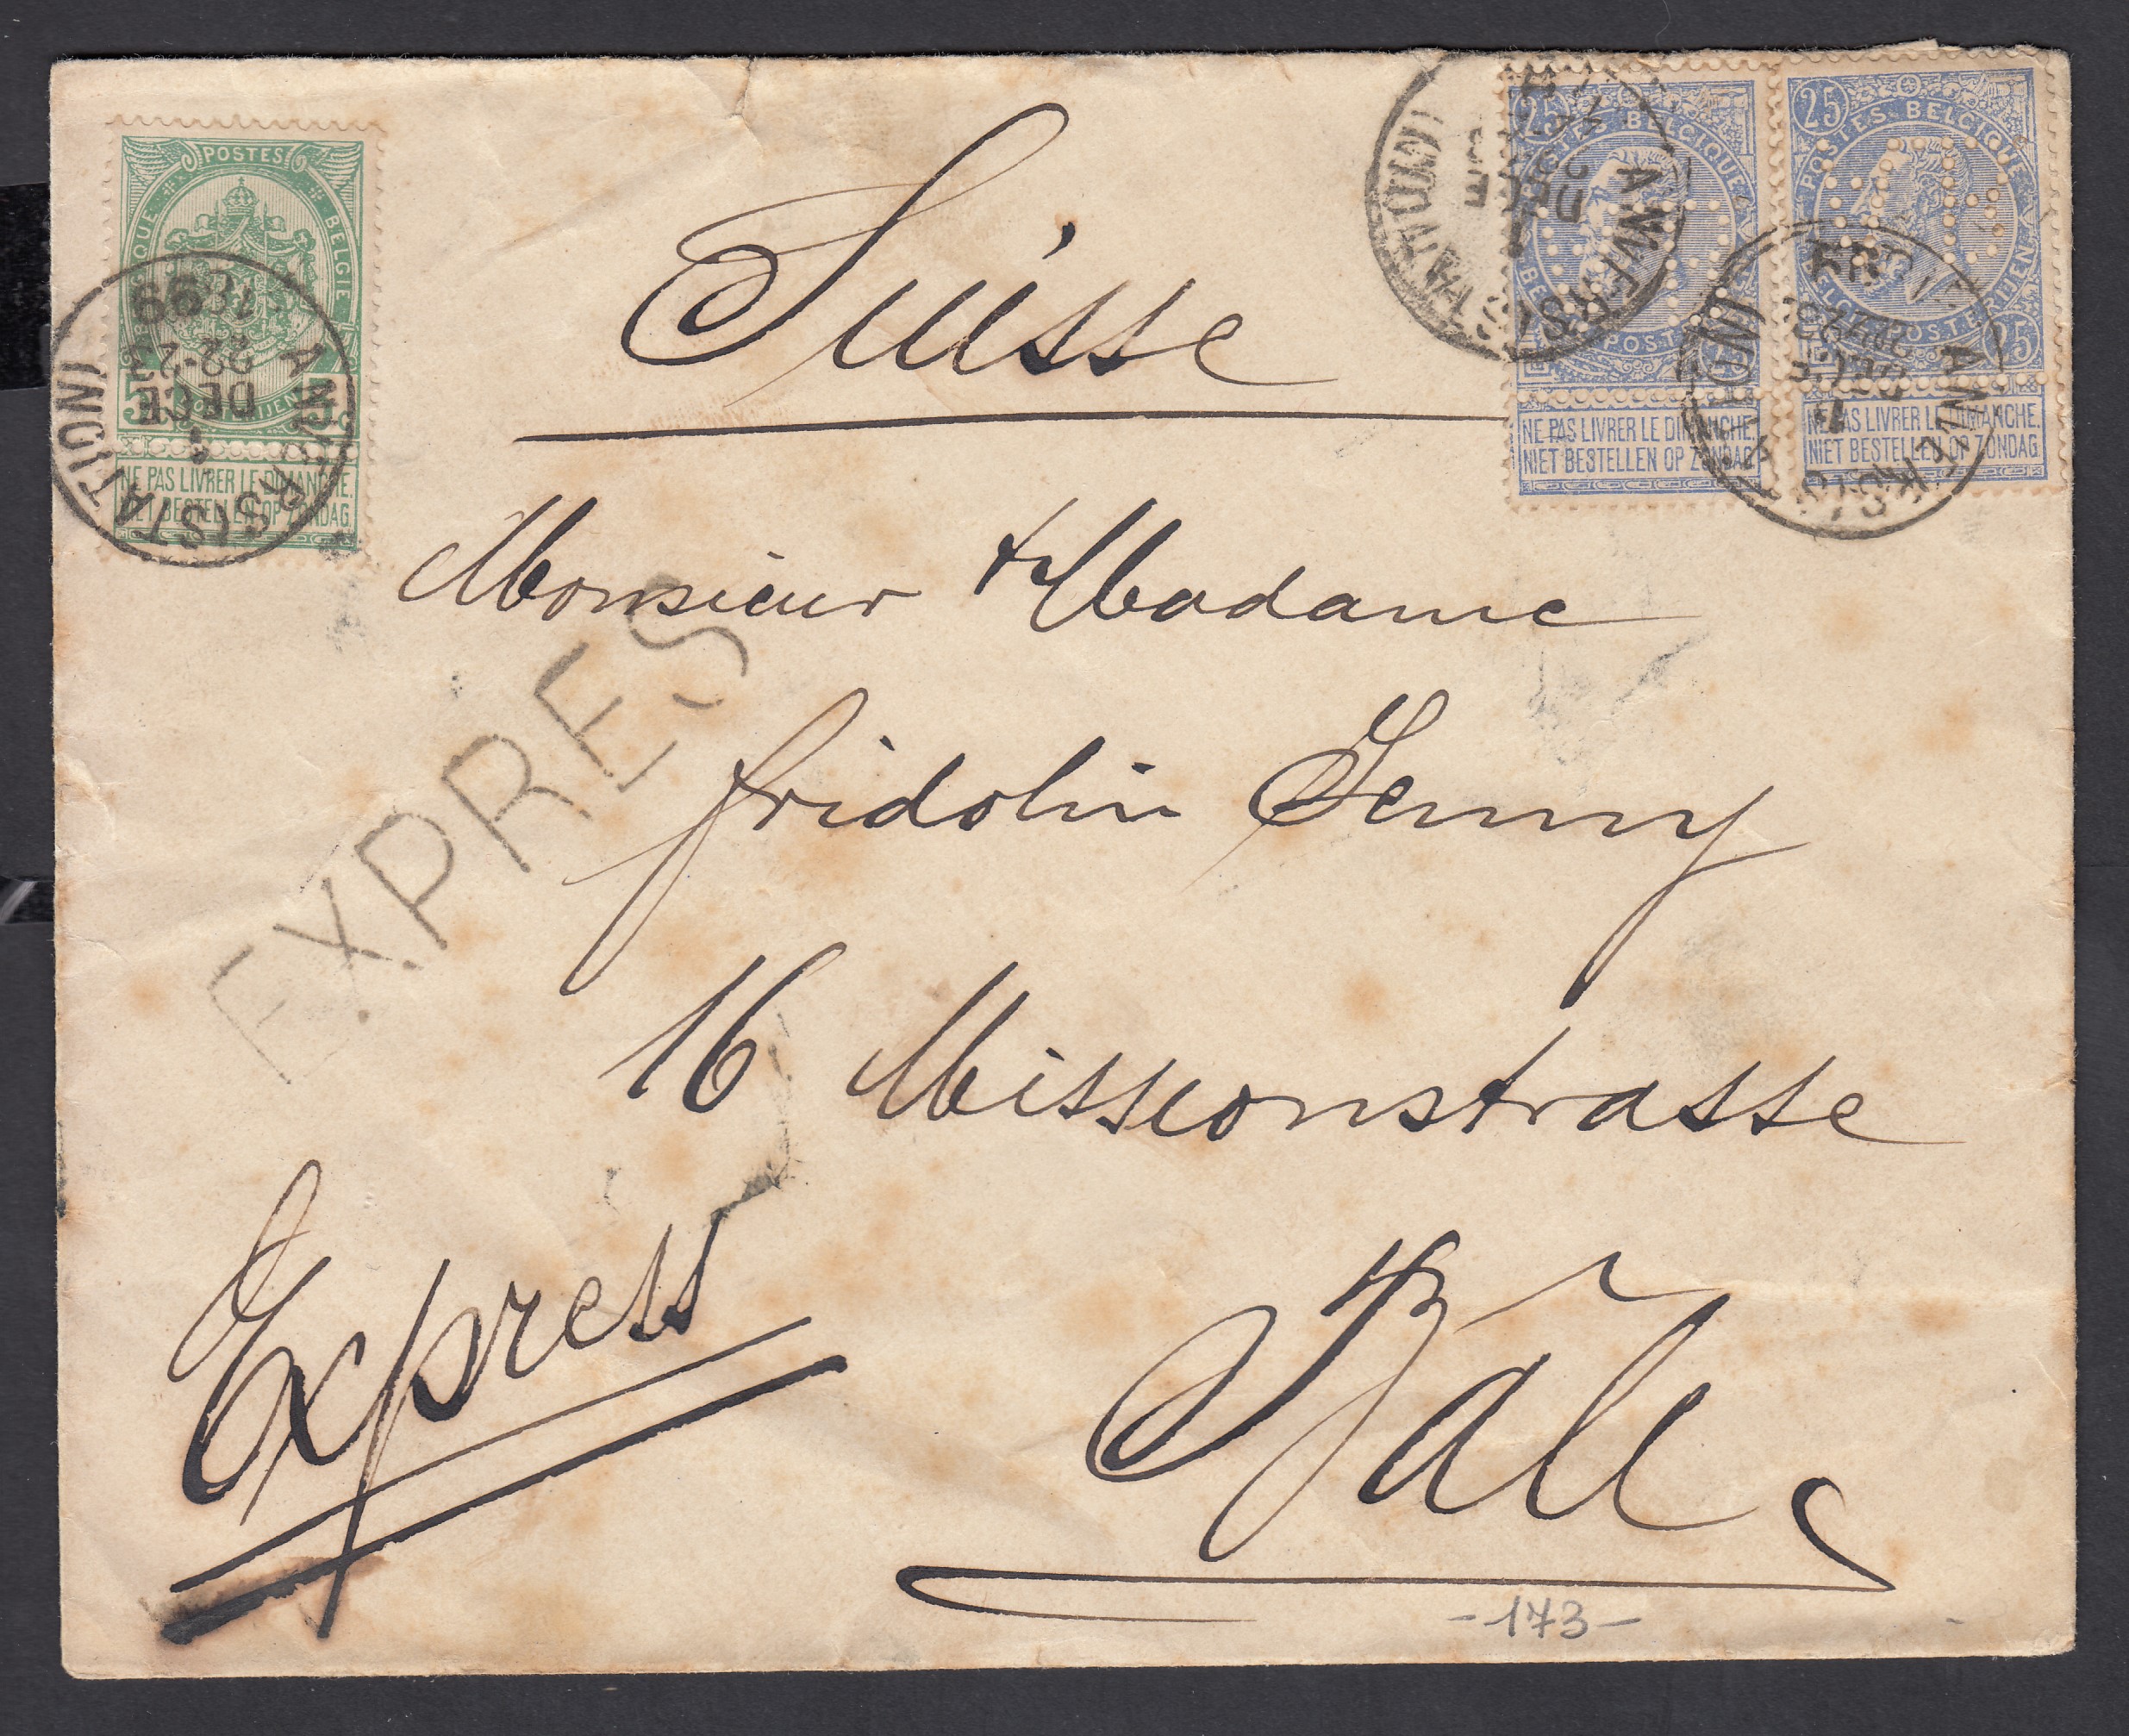 Suisse
Monsieur & Madame
Fridolin Jenny
16 Missionstrasse
Bâle
Express
EXPRES
POSTES
BELGIQUE BELGIE
5
NE PAS LIVRER LE DIMANCHE.
NIET BESTELLEN OP ZONDAG
ANVERS (STATION)
1
DECE
22-23
1899
25 POSTES BELGIQUE
NE PAS LIVRER LE DIMANCHE.
NIET BESTELLEN OP ZONDAG
25 POSTES BELGIQUE
25
NE PAS LIVRER LE DIMANCHE.
NIET BESTELLEN OP ZONDAG
ANVERS (STATION)
ANVERS
-173-